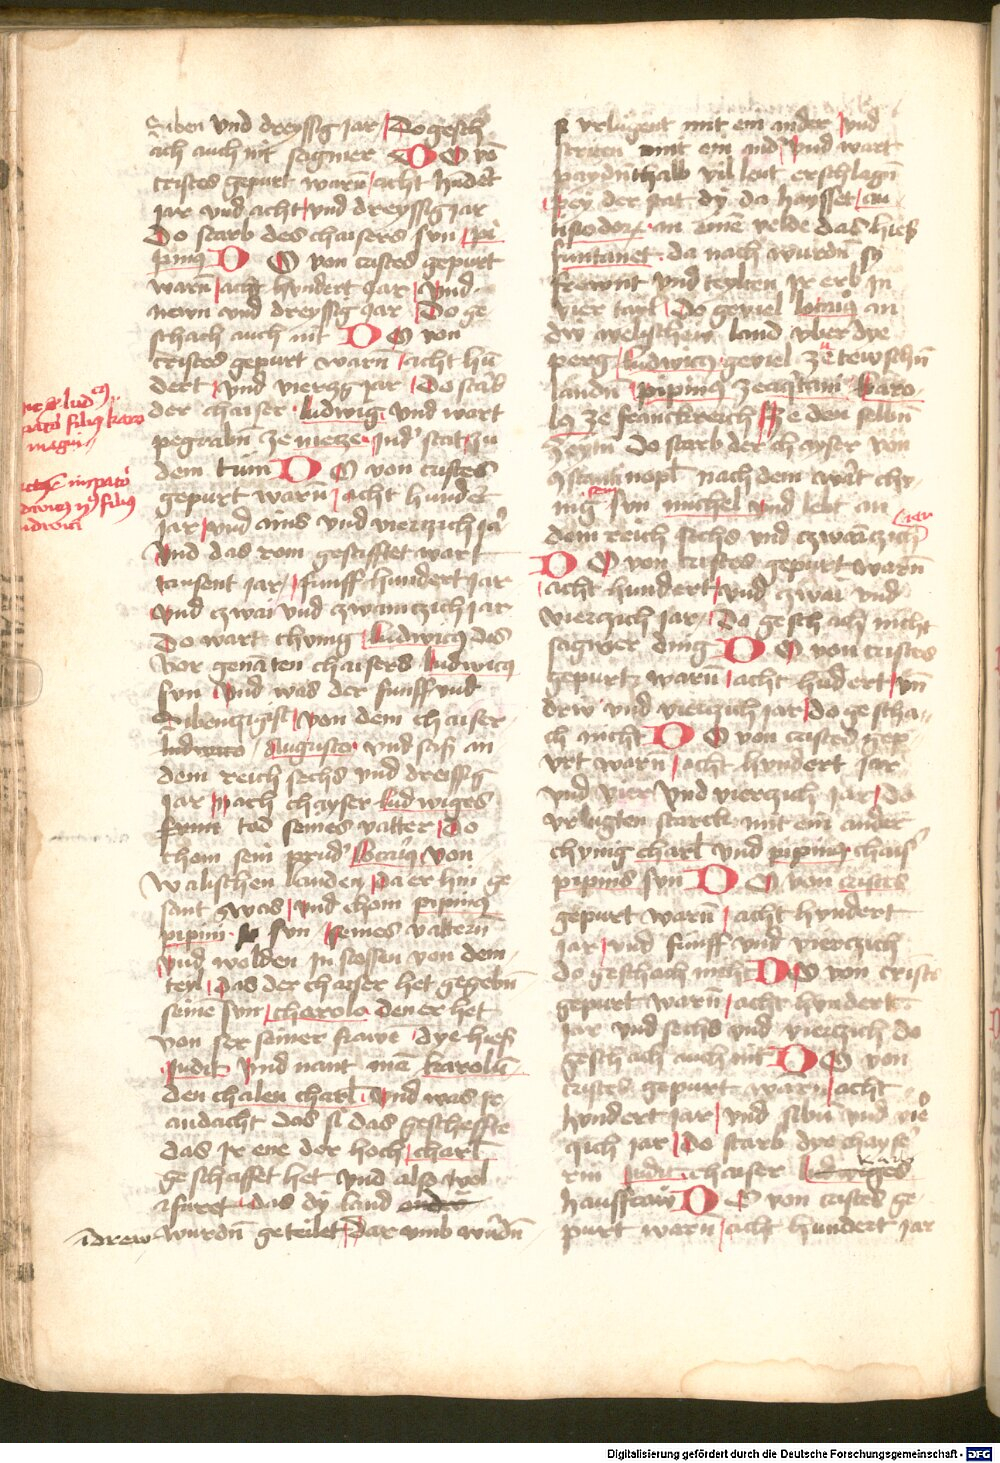 Siben vnd dreyssig jar Do gesch
ach auch nit sagmer DO vō
cristes gepurt warn̄ acht hūdert
jar vnd acht vnd dreyssig jar
Do starb des chaisers sun pi
pinus DO von cristes gepurt
warn̄ acht hundert jar vnd
newn vnd dreyssig jar Do ge
schach auch nit DO von
cristes gepurt warn̄ acht hū
dert vnd vierzig jar Do starb
der chaiser ludwig vnd wart
pegrabn̄ ze metze Ind' stat zu
dem tum DO von cristes
gepurt warn̄ acht hundert
jar vnd ains vnd vierczich jar
Vnd das rom gestifftet wart
tausent jar funff hundert jar
vnd czwai vnd czwainczich jar
Do wart chunig ludwicus das
vor genāten chaisers ludwicus
sun Vnd was der funff vnd
Sibenczigist von dem chaiser
Augusto vnd sass an
dem reich sechs vnd dreissig
jar Nach chayser ludwiges
tod seines vatter Do
chom sein prud' lotarius von
Walischen landen da er hin ge
sant was vnd chom pipinus
pipini sun seines vattern̄
Vnd wolden In stossen von dem
teyl das der chaiser het gegebn̄
seinē sun charolo den er het
von ser seiner frawē dye hiess
Judit Vnd nant mā karolū
den chalen charl Vnd was jr
andacht das si das gescheffte
das Ir ene der hoch charl
geschaffet het vnd also wol
das dy land
Idrew wurdn̄ geteilet Dar vmb wurdn̄
vrlugent mit ein ander vnd
striten mit ein and' Vnd wart
paydnthalb vil leut erschlagn̄
pey der stat dy da haysset an
tisiodorx an ainē velde das hiess
funtanet da nach wurdn̄ sy
frewnt vnd teylten Ir erb in
vier tayl Do geviel lotarius an
dw welyschew land vber dye
perg ludwicus geviel zē tewschn̄
landn̄ pipinus ze aqitani karo
lus ze franckreich pe den selbn̄
zeytn Do starb der chayser von
nopl nach dem wart chu
nig sein sun michel vnd lebt an
dem reich sechs vnd czwainczich jar
DO von cristes gepurt warn̄
acht hundert vnd czwai vnd
vierczich jar Do geschach nicht
sagwer ding DO von cristes
gepurt warn̄ acht hūdert vn̄
drw vnd vierczich jar Do gescha
ch nicht DO von cristes gep
vrt warn̄ acht hundert jar
vnd vier vnd vierczich jar Do
vrlugten starck mit ein ander
chunig charl vnd pipinus chaiser
pipinus sun DO von cristes
gepurt warn̄ acht hundert
jar vnd funff vnd vierczich
do geschach nicht DO von cristes
gepurt warn̄ acht hundert
jar vnd sechs vnd vierczich do
geschach auch nit DO von
cristes gepurt warn̄ acht
hundert jar vnd sibn̄ vnd vier
czich jar Do starb dye chayse
rin Judit chaiser ludwiges
hausfraw DO von cristes ge
purt warn̄ acht hundert jar
filius karo
magni
filius
Digitalisierung gefördert durch die Deutsche Forschungsgemeinschaft - DFG